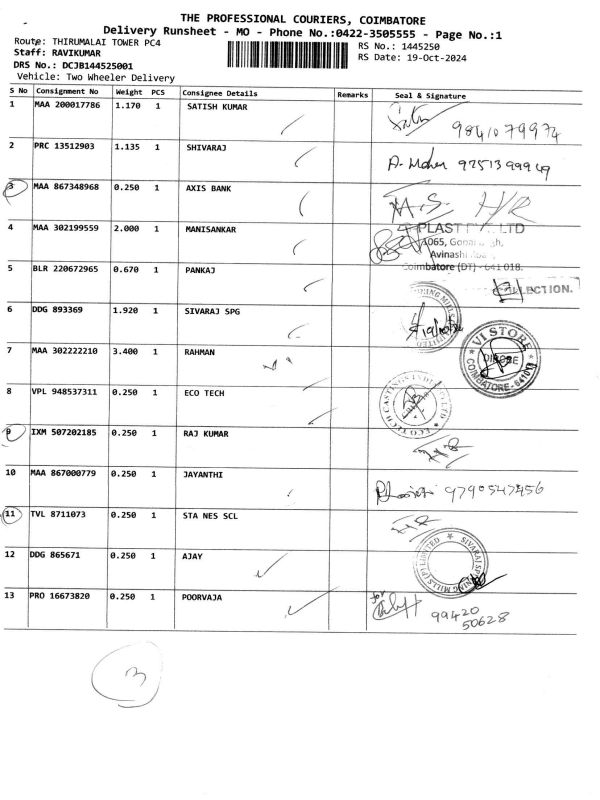 THE PROFESSIONAL COURIERS, COIMBATORE
Delivery Runsheet - MO - Phone No.:0422-3505555 - Page No.:1
Route: THIRUMALAI TOWER PC4
RS No.: 1445250
Staff: RAVIKUMAR
RS Date: 19-Oct-2024
DRS No.: DCJB144525001
Vehicle: Two Wheeler Delivery
S No Consignment No Weight PCS Consignee Details Remarks Seal & Signature
1 MAA 200017786 1.170 1 SATISH KUMAR
9841079974
2 PRC 13512903 1.135 1 SHIVARAJ
3 MAA 867348968 0.250 1 AXIS BANK
4 MAA 302199559 2.000 1 MANISANKAR
PLAST LTD
Coimbatore (DT) - 641 018.
5 BLR 220672965 0.670 1 PANKAJ
6 DDG 893369 1.920 1 SIVARAJ SPG
7 MAA 302222210 3.400 1 RAHMAN
VI STORE
COIMBATORE
8 VPL 948537311 0.250 1 ECO TECH
ECO TECH CASTINGS
9 IXM 507202185 0.250 1 RAJ KUMAR
10 MAA 867000779 0.250 1 JAYANTHI
9790547456
11 TVL 8711073 0.250 1 STA NES SCL
12 DDG 865671 0.250 1 AJAY
SIVARAJ SPINNING MILLS (P) LIMITED
13 PRO 16673820 0.250 1 POORVAJA
for
99420
50628
3